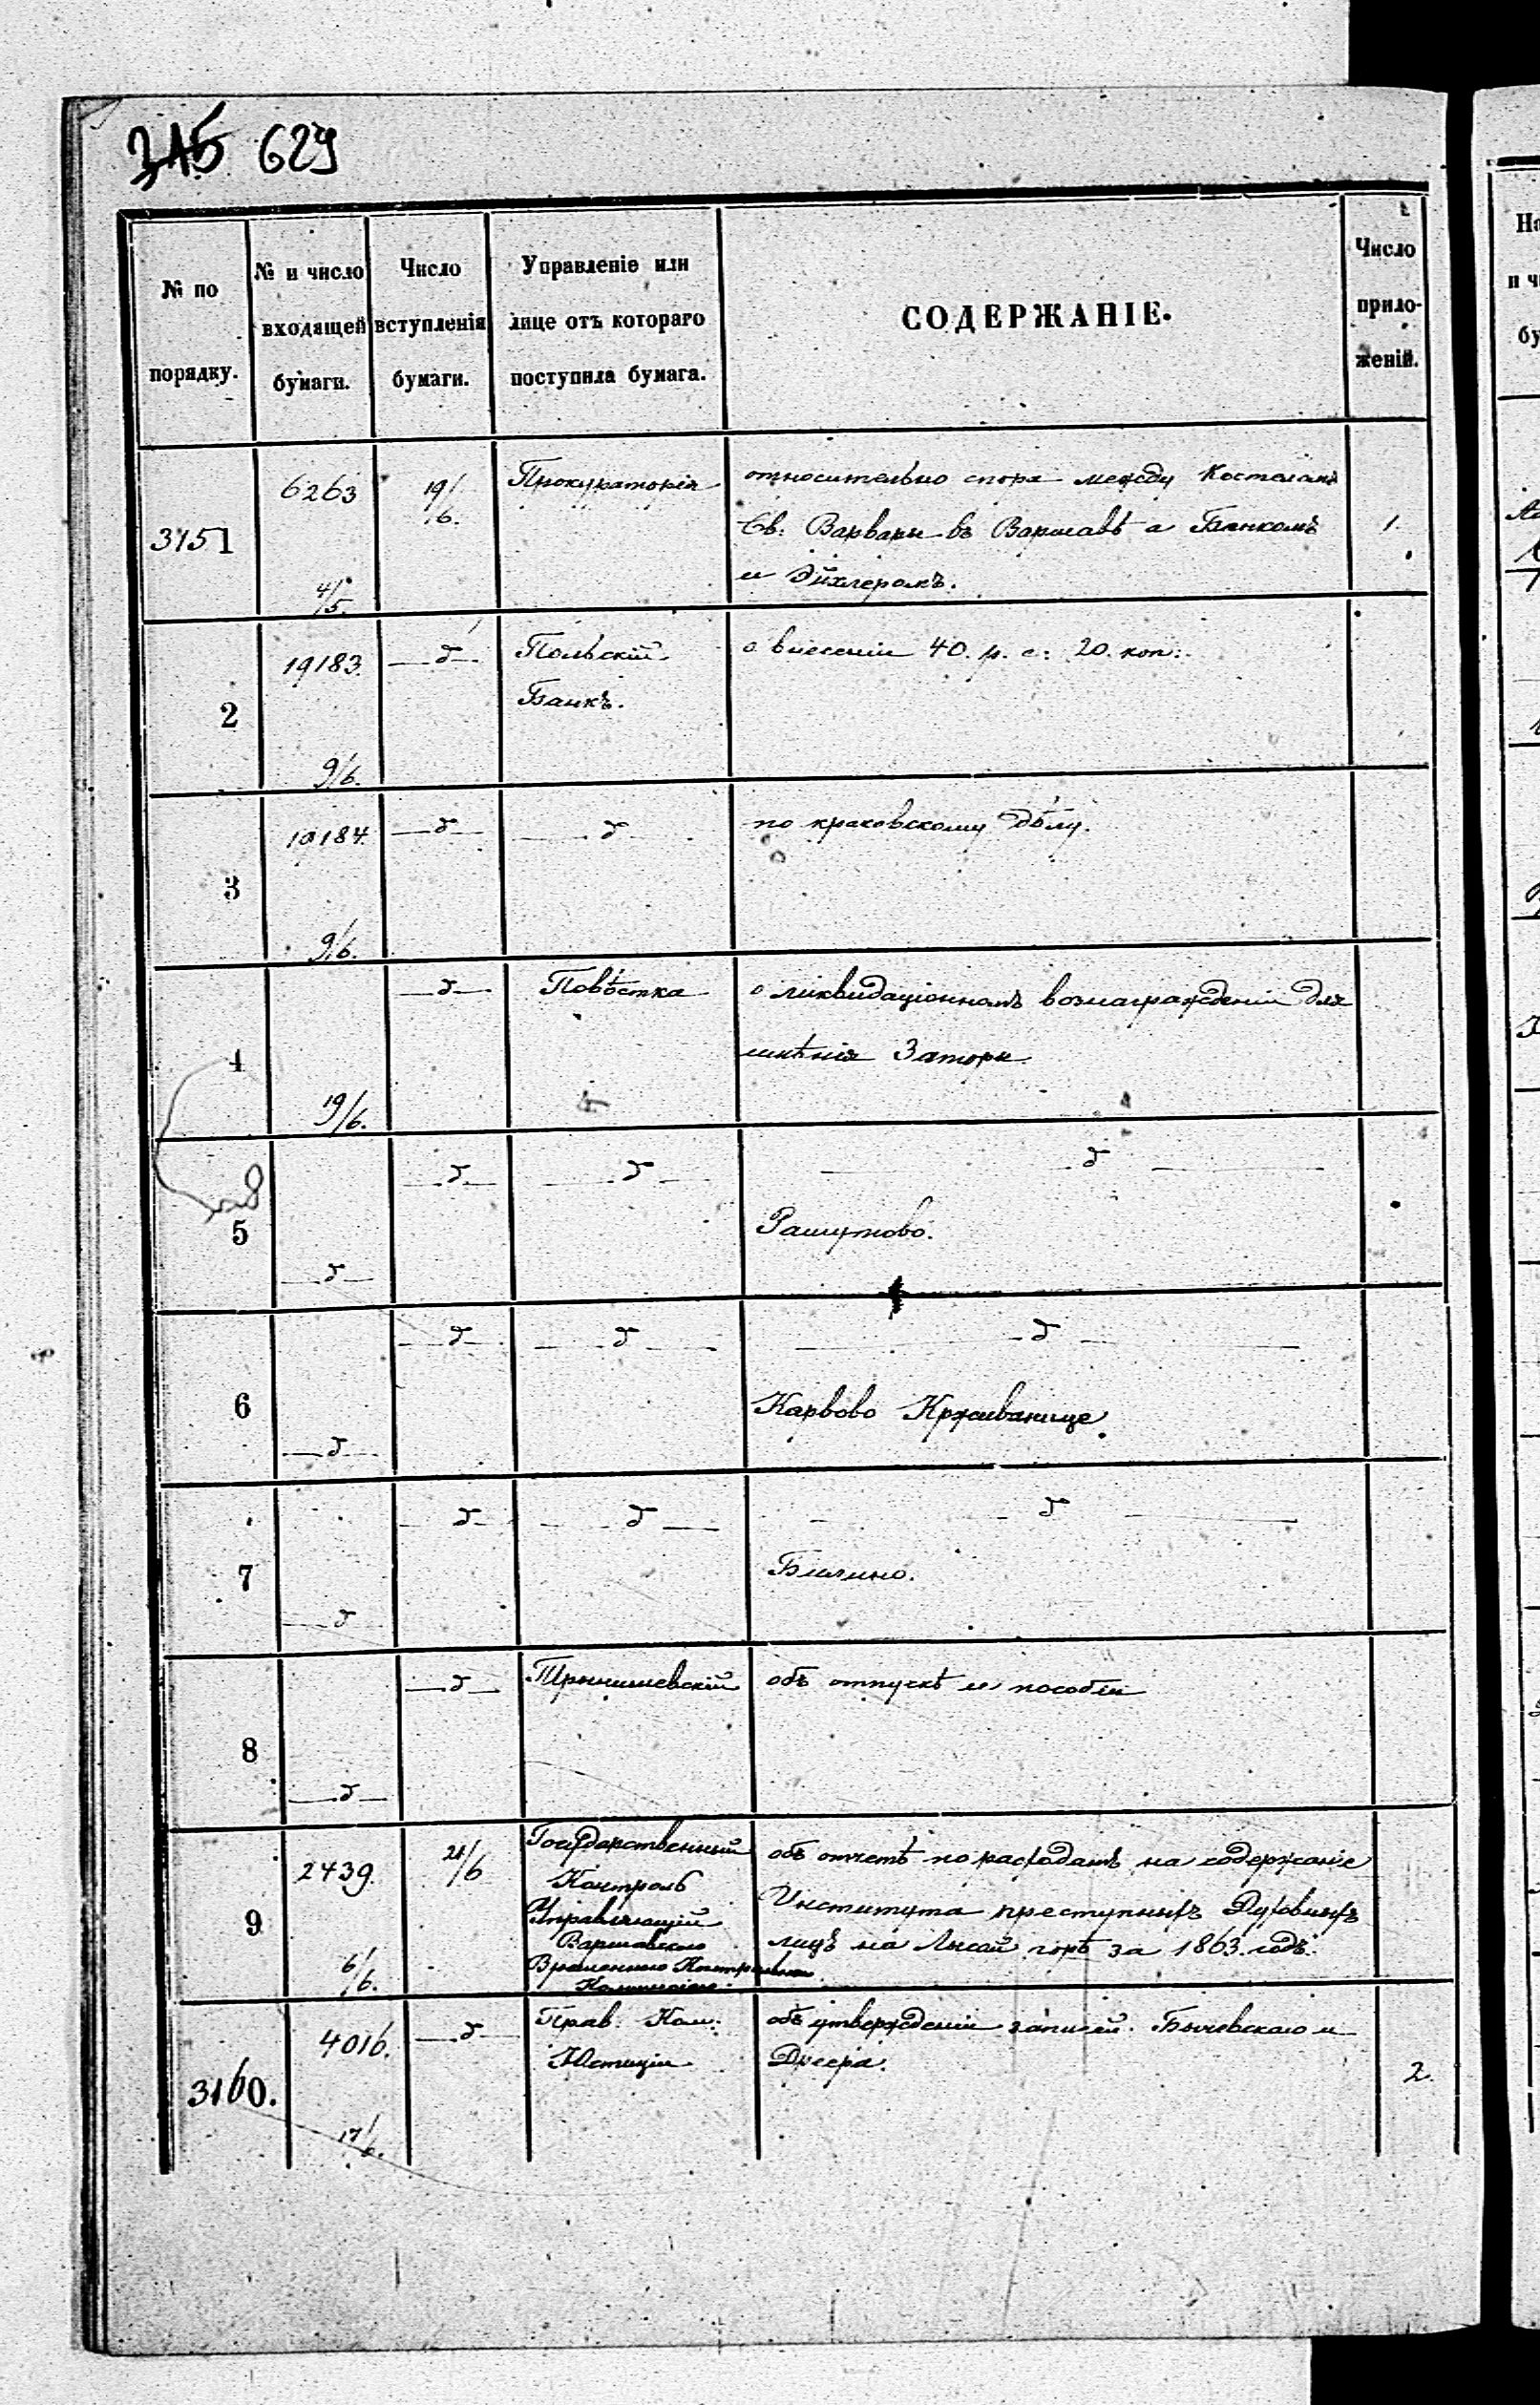 315 629
№ по порядку.
№ и число входящей бумаги.
Число вступленія бумаги.
Управленіе или лице отъ котораго поступила бумага.
СОДЕРЖАНІЕ.
Число приложеній.
3151
6263
4/5.
19/6.
Прокураторія
относительно спора между Костеломъ
Св. Варвары въ Варшавѣ а Банкомъ
и Эйхлеромъ.
1.
2
19183.
9/6.
— д —
Польскій
Банкъ.
о внесеніи 40. р. с. 20. коп.
3
19184.
9/6.
— д —
— д
по краковскому дѣлу.
4
19/6.
— д —
Повѣстка
о ликвидаціонномъ вознагражденіи для
имѣнія Заторы
5
— д —
— д —
— д —
— д —
6
— д —
— д —
— д —
— д —
Карвово Крживанице.
7
— д
— д —
— д —
— д —
8
— д —
— д —
объ отпускѣ и пособіи
9
2439.
6/6.
21/6
Государственный
Контроль
Управляющій
Варшавскою
Временною Контрольною
Коммиссіею
объ отчетѣ по расходамъ на содержаніе
Института преступныхъ Духовныхъ
лицъ на Лысой горѣ за 1863. годъ.
3160.
4016.
17/6.
— д —
Прав. Ком.
Юстиціи
объ утвержденіи записей
2.